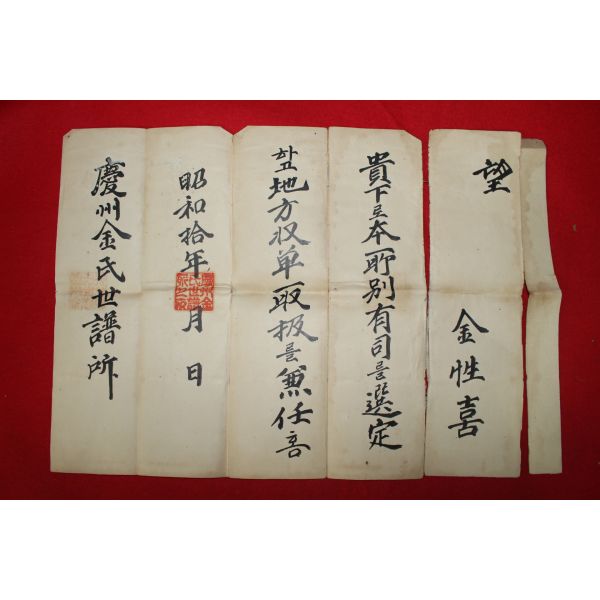 望
金性喜
貴下로本所別有司를選定
하고地方収单取扱를兼任홈
昭和拾年 月 日
慶州金氏世譜所